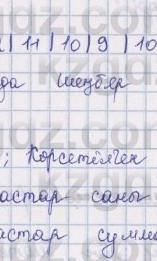 | 11 | 10 | 9 | 10
да шеңбер
; Көрсетілген
астар саны
астар сумма